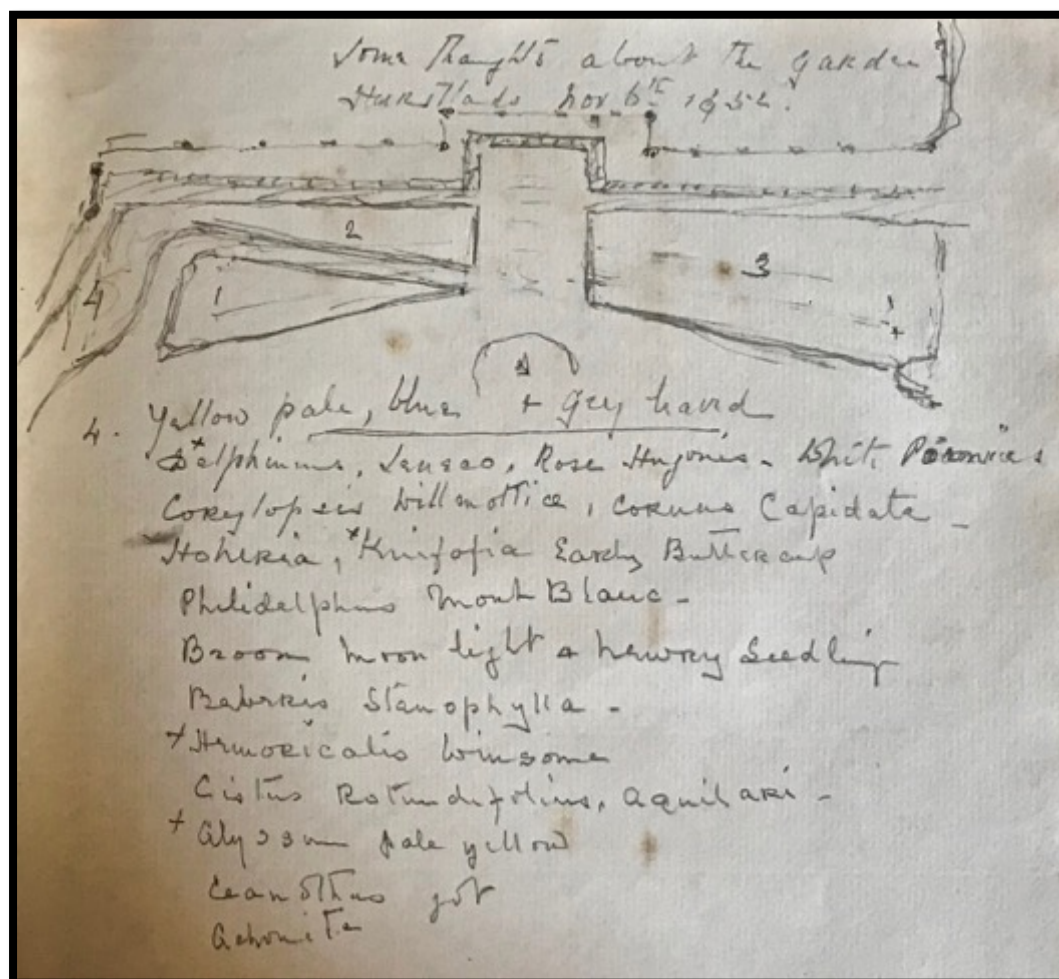 Some thoughts about the garden
Nov 6th 1952.
2
3
4
1
4. Yellow pale, blue + grey
Delphiniums, Rose Hugonis - White Paeonies
Corylopsis Willmottiae, Cornus Capidata -
x Hoheria, x Knifofia Early Buttercup
Philidelphus Mont Blanc -
Broom Moon light + Newry Seedling
Baberis Stanophylla -
x Hemoricalis Winsome
Cistus Rotundifolius, Aguilari -
x Alyssum pale yellow
Ceanothus got
Aconite